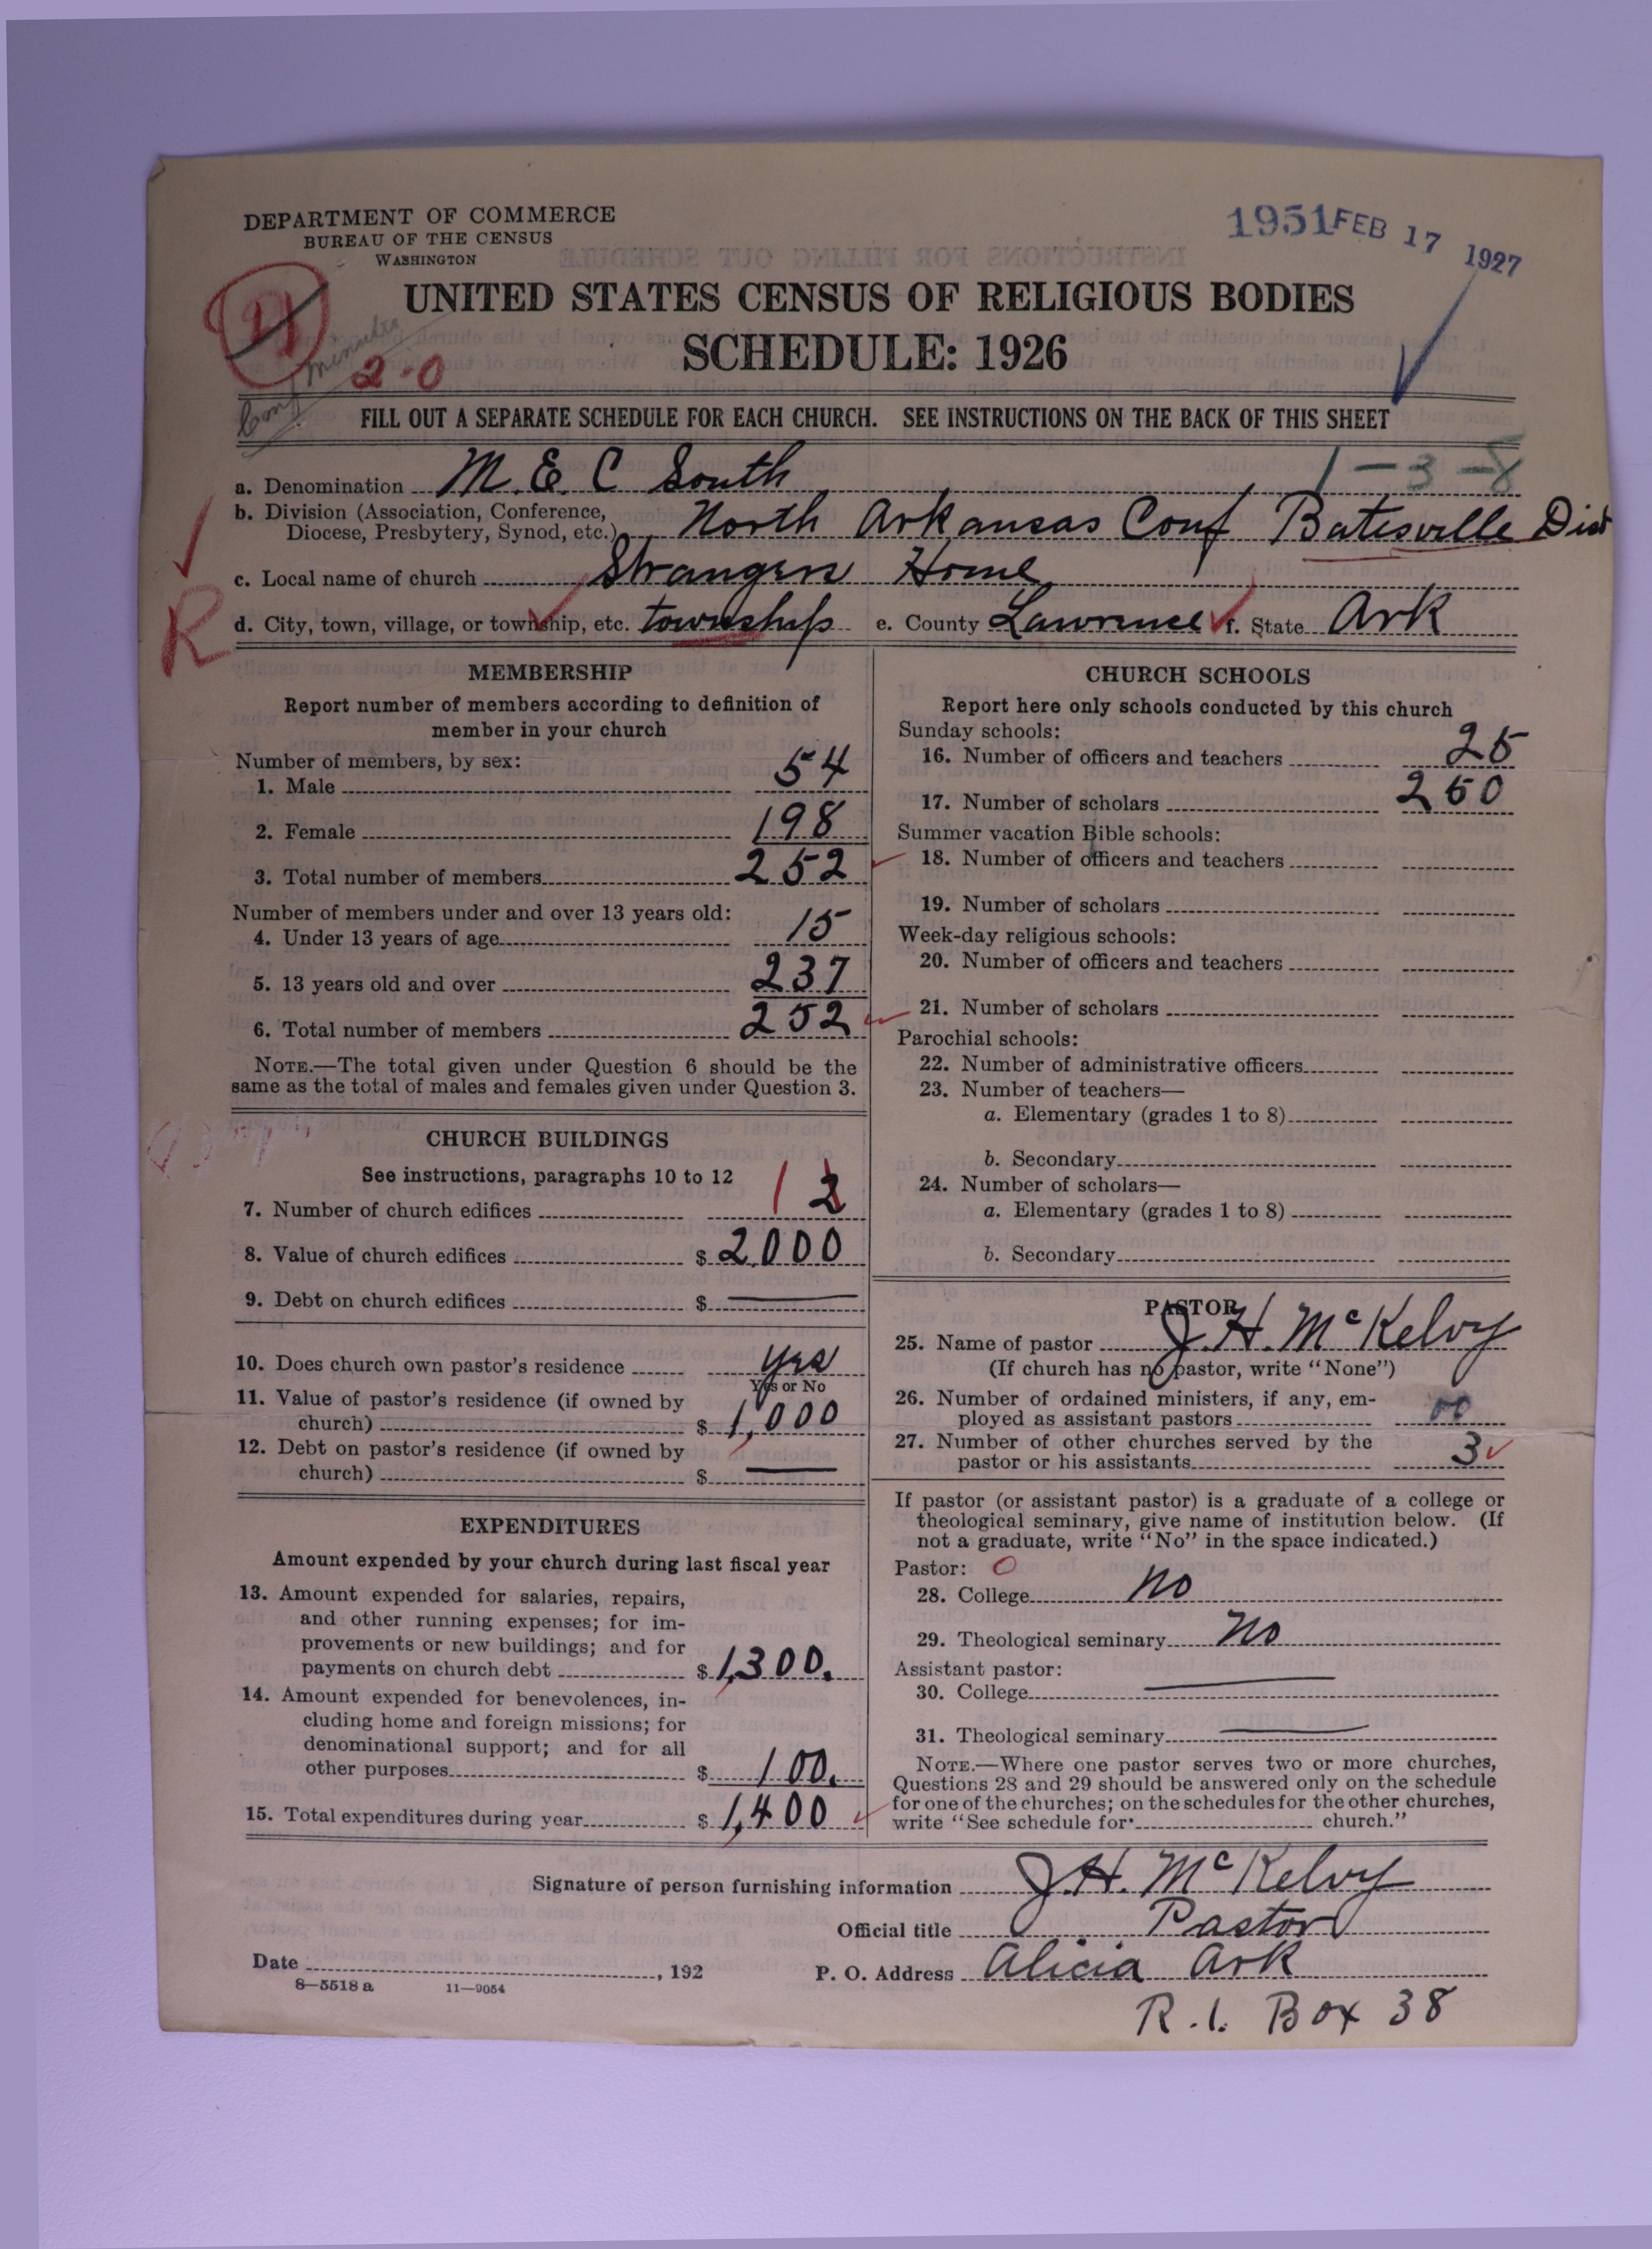 DEPARTMENT OF COMMERCE
BUREAU OF THE CENSUS
WASHINGTON
1951 FEB 17 1927
UNITED STATES CENSUS OF RELIGIOUS BODIES
SCHEDULE: 1926
2-0
FILL OUT A SEPARATE SCHEDULE FOR EACH CHURCH. SEE INSTRUCTIONS ON THE BACK OF THIS SHEET
1-3-8
a. Denomination M. E. C South
b. Division (Association, Conference,
Diocese, Presbytery, Synod, etc.) North Arkansas Conf Batesville Dist
c. Local name of church Strangers Home
d. City, town, village, or township, etc. township e. County Lawrence f. State Ark
R
MEMBERSHIP
Report number of members according to definition of
member in your church
Number of members, by sex:
1. Male 54
2. Female 198
3. Total number of members 252
Number of members under and over 13 years old:
4. Under 13 years of age 15
5. 13 years old and over 237
6. Total number of members 252
NOTE.—The total given under Question 6 should be the
same as the total of males and females given under Question 3.
CHURCH BUILDINGS
See instructions, paragraphs 10 to 12
7. Number of church edifices 1 2
8. Value of church edifices $ 2000
9. Debt on church edifices $ —
10. Does church own pastor's residence yes
Yes or No
11. Value of pastor's residence (if owned by
church) $ 1,000
12. Debt on pastor's residence (if owned by
church) $ —
EXPENDITURES
Amount expended by your church during last fiscal year
13. Amount expended for salaries, repairs,
and other running expenses; for im-
provements or new buildings; and for
payments on church debt $ 1,300.
14. Amount expended for benevolences, in-
cluding home and foreign missions; for
denominational support; and for all
other purposes $ 100.
15. Total expenditures during year $ 1,400
CHURCH SCHOOLS
Report here only schools conducted by this church
Sunday schools:
16. Number of officers and teachers 25
17. Number of scholars 250
Summer vacation Bible schools:
18. Number of officers and teachers
19. Number of scholars
Week-day religious schools:
20. Number of officers and teachers
21. Number of scholars
Parochial schools:
22. Number of administrative officers
23. Number of teachers—
a. Elementary (grades 1 to 8)
b. Secondary
24. Number of scholars—
a. Elementary (grades 1 to 8)
b. Secondary
PASTOR
25. Name of pastor J. H. McKelvy
(If church has no pastor, write "None")
26. Number of ordained ministers, if any, em-
ployed as assistant pastors 00
27. Number of other churches served by the
pastor or his assistants 3
If pastor (or assistant pastor) is a graduate of a college or
theological seminary, give name of institution below. (If
not a graduate, write "No" in the space indicated.)
Pastor: 0
28. College no
29. Theological seminary no
Assistant pastor:
30. College —
31. Theological seminary —
NOTE.—Where one pastor serves two or more churches,
Questions 28 and 29 should be answered only on the schedule
for one of the churches; on the schedules for the other churches,
write "See schedule for church."
Signature of person furnishing information J. H. McKelvy
Official title Pastor
Date , 192 P. O. Address Alicia Ark
8—5518 a 11—9054
R. 1. Box 38